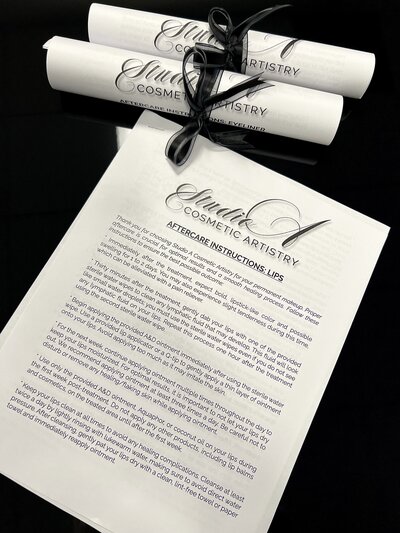 Studio A
COSMETIC ARTISTRY
Studio A
COSMETIC ARTISTRY
AFTERCARE INSTRUCTIONS: EYELINER
Studio A
COSMETIC ARTISTRY
AFTERCARE INSTRUCTIONS: LIPS
Thank you for choosing Studio A Cosmetic Artistry for your permanent makeup. Proper
aftercare is crucial for optimal results and a smooth healing process. Follow these
instructions to ensure the best possible outcome:
* Immediately after the treatment, expect bold, lipstick-like color and possible
swelling for 1 to 2 days. You may also experience slight tenderness during this time,
which can be alleviated with a pain reliever.
* Thirty minutes after the treatment, gently dab your lips with one of the provided
sterile water wipes to clean any lymphatic fluid that may develop. This fluid will look
like small water droplets. You must use the sterile water wipe even if you do not see
any lymphatic fluid on your lips. Repeat this process one hour after the treatment
using the second sterile water wipe.
* Begin applying the provided A&D ointment immediately after using the sterile water
wipe. Use a provided lip applicator or a q-tip to gently apply a thin layer of ointment
onto your lips. Avoid applying too much as it may irritate the skin.
* For the next week, continue applying ointment multiple times throughout the day to
keep your lips moisturized. For optimal results, it is important to not let your lips dry
out. We recommend applying ointment at least five times a day. Be careful not to
disturb or remove any healing/flaking skin while applying ointment.
* Use only the provided A&D ointment, Aquaphor, or coconut oil on your lips during
the first week post treatment. Do not apply any other products, including lip balms
and cosmetics, on the treated area until after the first week.
* Keep your lips clean at all times to avoid any healing complications. Cleanse at least
twice a day by gently rinsing with lukewarm water, making sure to avoid direct water
pressure. After cleansing, gently pat your lips dry with a clean, lint-free towel or paper
towel and immediately reapply ointment.